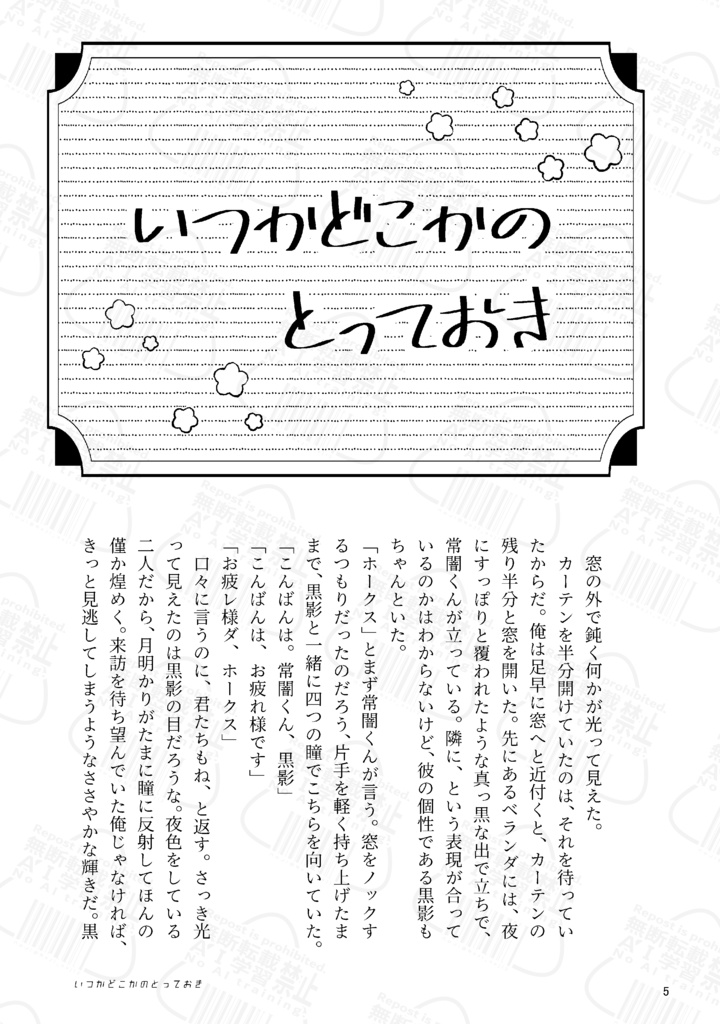 いつかどこかの
とっておき
窓の外で鈍く何かが光って見えた。
カーテンを半分開けていたのは、それを待ってい
たからだ。俺は足早に窓へと近付くと、カーテンの
残り半分と窓を開いた。先にあるベランダには、夜
にすっぽりと覆われたような真っ黒な出で立ちで、
常闇くんが立っている。隣に、という表現が合って
いるのかはわからないけど、彼の個性である黒影も
ちゃんといた。
「ホークス」とまず常闇くんが言う。窓をノックす
るつもりだったのだろう、片手を軽く持ち上げたま
まで、黒影と一緒に四つの瞳でこちらを向いていた。
「こんばんは。常闇くん、黒影」
「こんばんは、お疲れ様です」
「お疲レ様ダ、ホークス」
口々に言うのに、君たちもね、と返す。さっき光
って見えたのは黒影の目だろうな。夜色をしている
二人だから、月明かりがたまに瞳に反射してほんの
僅か煌めく。来訪を待ち望んでいた俺じゃなければ、
きっと見逃してしまうようなささやかな輝きだ。黒
いつかどこかのとっておき
5
Repost is prohibited.
無断転載禁止
AI学習禁止
No AI training.